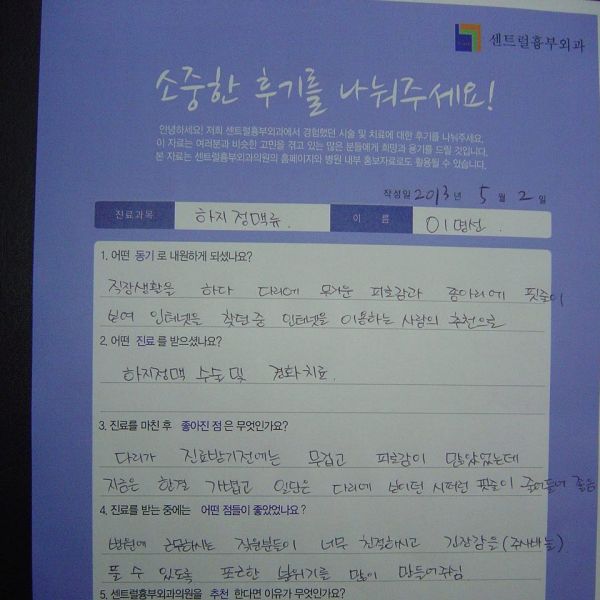 센트럴흉부외과
소중한 후기를 나눠주세요!
안녕하세요! 저희 센트럴흉부외과에서 경험했던 시술 및 치료에 대한 후기를 나눠주세요.
이 자료는 여러분과 비슷한 고민을 겪고 있는 많은 분들에게 희망과 용기를 드릴 것입니다.
본 자료는 센트럴흉부외과의원의 홈페이지와 병원 내부 홍보자료로도 활용될 수 있습니다.
작성일 2013 년 5 월 2 일
진료과목 하지정맥류. 이 름 이명선.
1. 어떤 동기 로 내원하게 되셨나요?
직장생활을 하다 다리에 무거운 피로감과 종아리에 핏줄이
보여 인터넷을 찾던중 인터넷을 이용하는 사람의 추천으로
2. 어떤 진료 를 받으셨나요?
하지정맥 수술및 경화치료.
3. 진료를 마친 후 좋아진 점 은 무엇인가요?
다리가 진료받기전에는 무겁고 피로감이 많았었는데
지금은 한결 가볍고 일단은 다리에 보이던 시퍼런 핏줄이 줄어들어 좋음
4. 진료를 받는 중에는 어떤 점들이 좋았었나요?
병원에 근무하시는 직원분들이 너무 친절하시고 긴장감을(주사바늘)
풀 수 있도록 포근한 분위기를 많이 만들어주심
5. 센트럴흉부외과의원을 추천 한다면 이유가 무엇인가요?